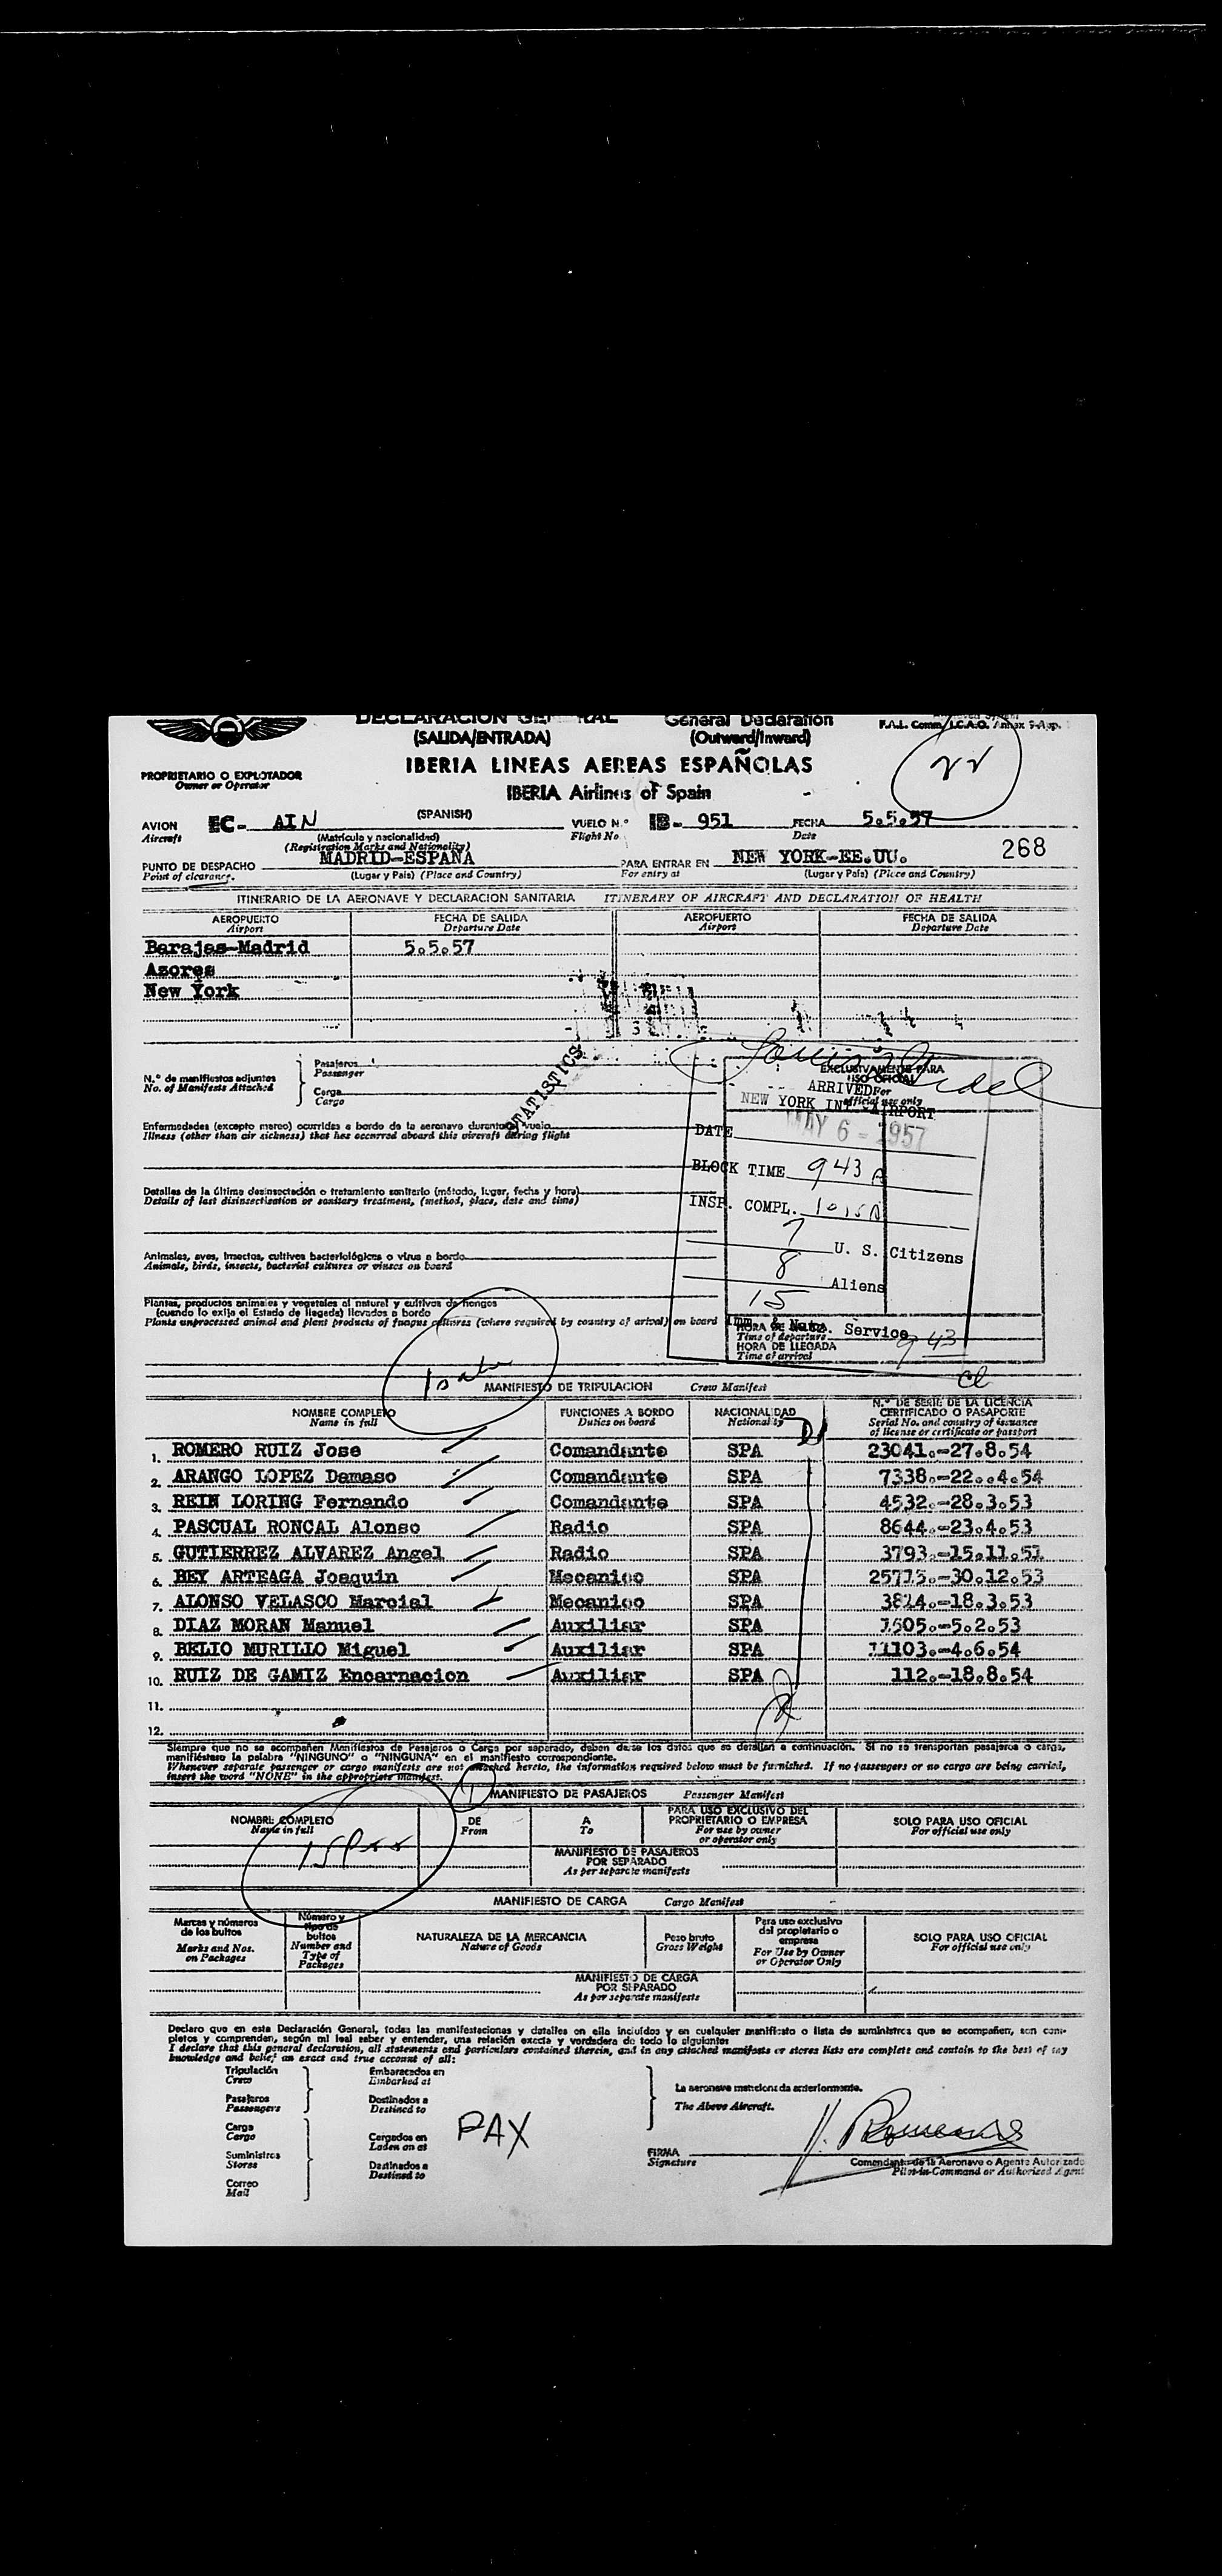 DECLARACION GENERAL General Declaration
F.A.L. Comm/I.C.A.O. Annex 9-App.
(SALIDA/ENTRADA) (Outward/Inward)
IBERIA LINEAS AEREAS ESPAÑOLAS
PROPRIETARIO O EXPLOTADOR
Owner or Operator
IBERIA Airlines of Spain
22
AVION EC- AIN (SPANISH) VUELO N.° IB- 951 FECHA 5.5.57
Aircraft (Matrícula y nacionalidad) Flight No Date
(Registration Marks and Nationality)
PUNTO DE DESPACHO MADRID-ESPAÑA PARA ENTRAR EN NEW YORK-EE.UU. 268
Point of clearance. (Lugar y País) (Place and Country) For entry at (Lugar y País) (Place and Country)
ITINERARIO DE LA AERONAVE Y DECLARACION SANITARIA ITINERARY OF AIRCRAFT AND DECLARATION OF HEALTH
AEROPUERTO FECHA DE SALIDA AEROPUERTO FECHA DE SALIDA
Airport Departure Date Airport Departure Date
Barajas-Madrid 5.5.57
Azores
New York
3
STATISTICS
N.° de manifiestos adjuntos
No. of Manifests Attached
Pasajeros
Passenger
Carga
Cargo
EXCLUSIVAMENTE PARA
USO OFICIAL
For official use only
ARRIVED
NEW YORK INT. AIRPORT
DATE MAY 6 - 1957
BLOCK TIME 943 A
INSP. COMPL. 1015 A
7 U. S. Citizens
8 Aliens
15
Imm. & Natz. Service
HORA DE SALIDA
Time of departure
HORA DE LLEGADA 9 43
Time of arrival
Enfermedades (excepto mareo) ocurridas a bordo de la aeronave durante el vuelo
Illness (other than air sickness) that has occurred aboard this aircraft during flight
Detalles de la última desinsectación o tratamiento sanitario (método, lugar, fecha y hora)
Details of last disinsectisation or sanitary treatment, (method, place, date and time)
Animales, aves, insectos, cultivos bacteriológicos o virus a bordo
Animals, birds, insects, bacterial cultures or viruses on board
Plantas, productos animales y vegetales al natural y cultivos de hongos
(cuando lo exija el Estado de llegada) llevados a bordo
Plants unprocessed animal and plant products of fungus cultures (where required by country of arival) on board
MANIFIESTO DE TRIPULACION Crew Manifest
NOMBRE COMPLETO FUNCIONES A BORDO NACIONALIDAD N.° DE SERIE DE LA LICENCIA
Name in full Duties on board Nationality CERTIFICADO O PASAPORTE
Serial No. and country of issuance
of license or certificate or passport
1. ROMERO RUIZ Jose Comandante SPA 23041.-27.8.54
2. ARANGO LOPEZ Damaso Comandante SPA 7338.-22..4.54
3. REIN LORING Fernando Comandante SPA 4532.-28.3.53
4. PASCUAL RONCAL Alonso Radio SPA 8644.-23.4.53
5. GUTIERREZ ALVAREZ Angel Radio SPA 3793.-15.11.51
6. BEY ARTEAGA Joaquin Mecanico SPA 25715.-30.12.53
7. ALONSO VELASCO Marcial Mecanico SPA 3824.-18.3.53
8. DIAZ MORAN Manuel Auxiliar SPA 1605.-5.2.53
9. BELIO MURILLO Miguel Auxiliar SPA 11103.-4.6.54
10. RUIZ DE GAMIZ Encarnacion Auxiliar SPA 112.-18.8.54
11.
12.
Siempre que no se acompañen Manifiestos de Pasajeros o Carga por separado, deben darse los datos que se detallan a continuación. Si no se transportan pasajeros o carga,
manifiéstese la palabra "NINGUNO" o "NINGUNA" en el manifiesto correspondiente.
Whenever separate passenger or cargo manifests are not attached hereto, the information required below must be furnished. If no passengers or no cargo are being carried,
insert the word "NONE" in the appropriate manifest.
1
MANIFIESTO DE PASAJEROS Passenger Manifest
NOMBRE COMPLETO DE A PARA USO EXCLUSIVO DEL SOLO PARA USO OFICIAL
Name in full From To PROPIETARIO O EMPRESA For official use only
For use by owner
or operator only
15 Pass
MANIFIESTO DE PASAJEROS
POR SEPARADO
As per separate manifests
MANIFIESTO DE CARGA Cargo Manifest
Marcas y números
de los bultos
Marks and Nos.
on Packages
Número y
tipo de
bultos
Number and
Type of
Packages
NATURALEZA DE LA MERCANCIA
Nature of Goods
Peso bruto
Gross Weight
Para uso exclusivo
del propietario o
empresa
For Use by Owner
or Operator Only
SOLO PARA USO OFICIAL
For official use only
MANIFIESTO DE CARGA
POR SEPARADO
As per separate manifests
Declaro que en esta Declaración General, todas las manifestaciones y detalles en ella incluídos y en cualquier manifiesto o lista de suministros que se acompañen, son com-
pletos y comprenden, según mi leal saber y entender, una relación exacta y verdadera de todo lo siguiente:
I declare that this general declaration, all statements and particulars contained therein, and in any attached manifests or stores lists are complete and contain to the best of my
knowledge and belief an exact and true account of all:
Tripulación
Crew
Pasajeros
Passengers
Carga
Cargo
Suministros
Stores
Correo
Mail
Embarcados en
Embarked at
Destinados a
Destined to
Cargados en
Laden on at
Destinados a
Destined to
PAX
La aeronave mencionada anteriormente.
The Above Aircraft.
FIRMA
Signature
Comandante de la Aeronave o Agente Autorizado
Pilot-in-Command or Authorized Agent